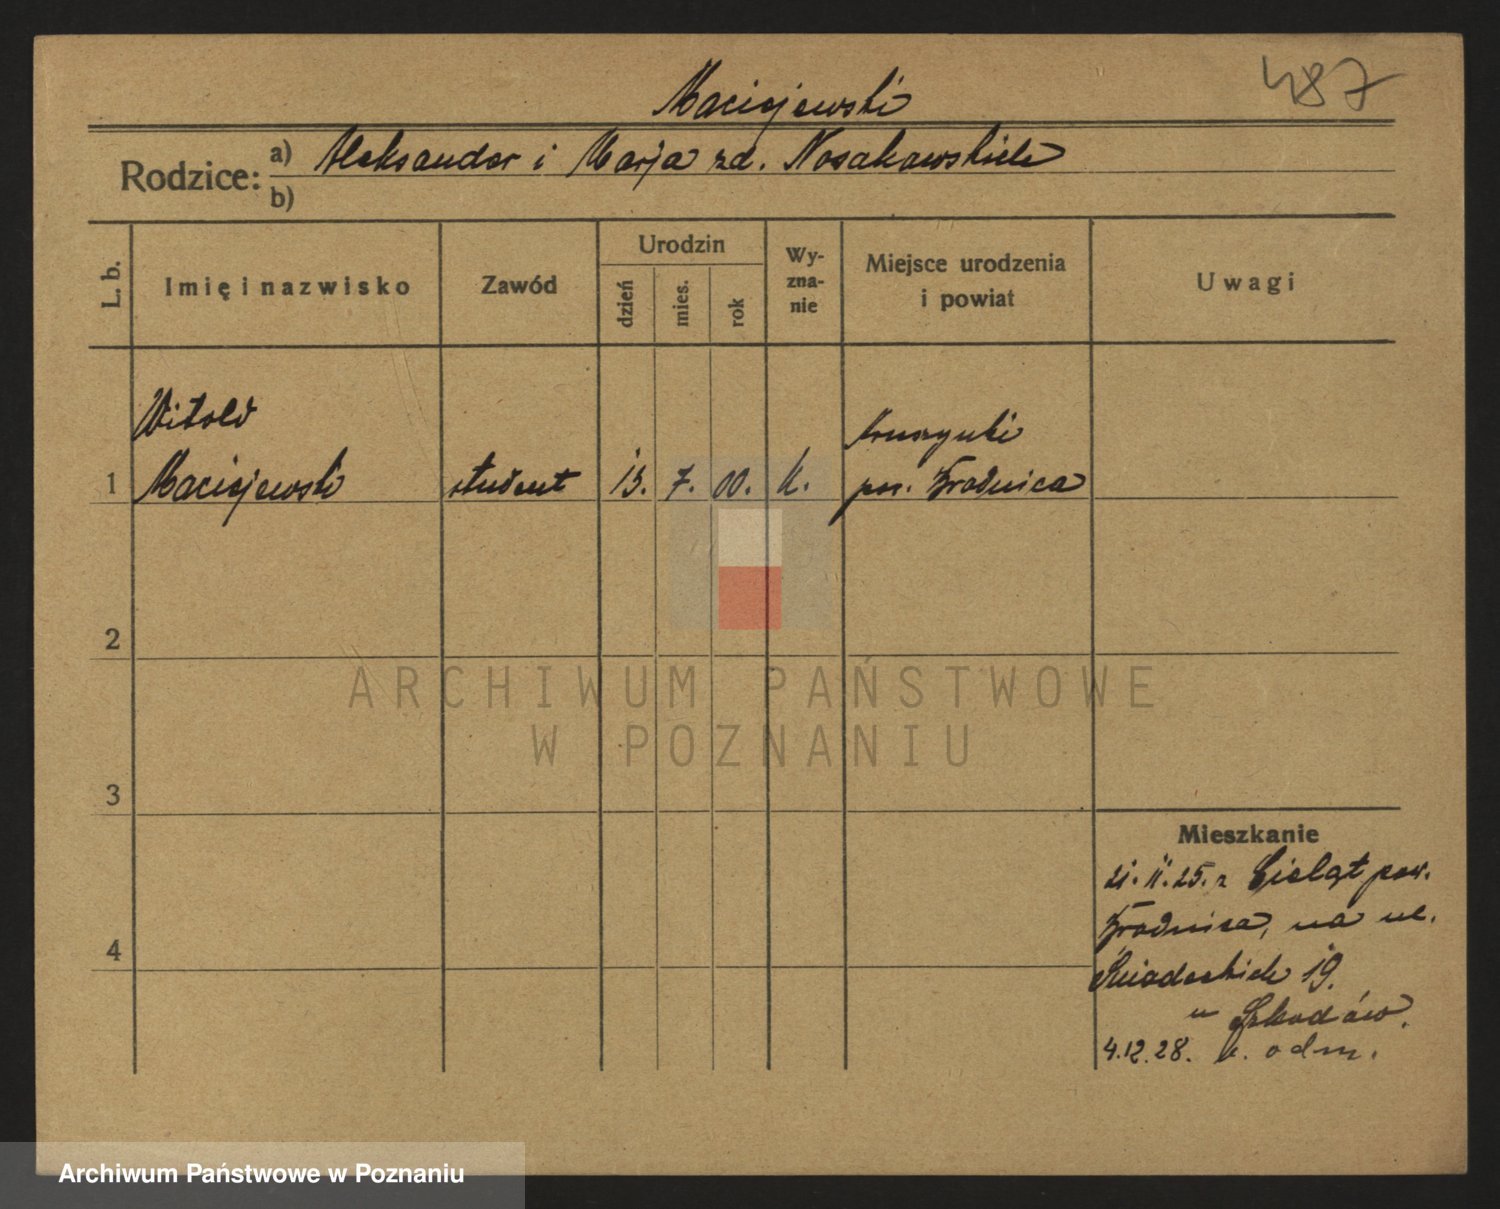 487
Maciejewski
Rodzice: a) Aleksander i Marja zd. Nosakowskich
b)
L. b. Imię i nazwisko Zawód Urodzin dzień mies. rok Wyznanie Miejsce urodzenia i powiat Uwagi
Witold
1 Maciejewski student 13. 7. 00. k. Kruszynki
pow. Brodnica
2
ARCHIWUM PAŃSTWOWE
W POZNANIU
3
4
Mieszkanie
21. 11. 25. z Cieląt pow.
Brodnica, na ul.
Śniadeckich 19.
u
4.12.28. odm.
Archiwum Państwowe w Poznaniu